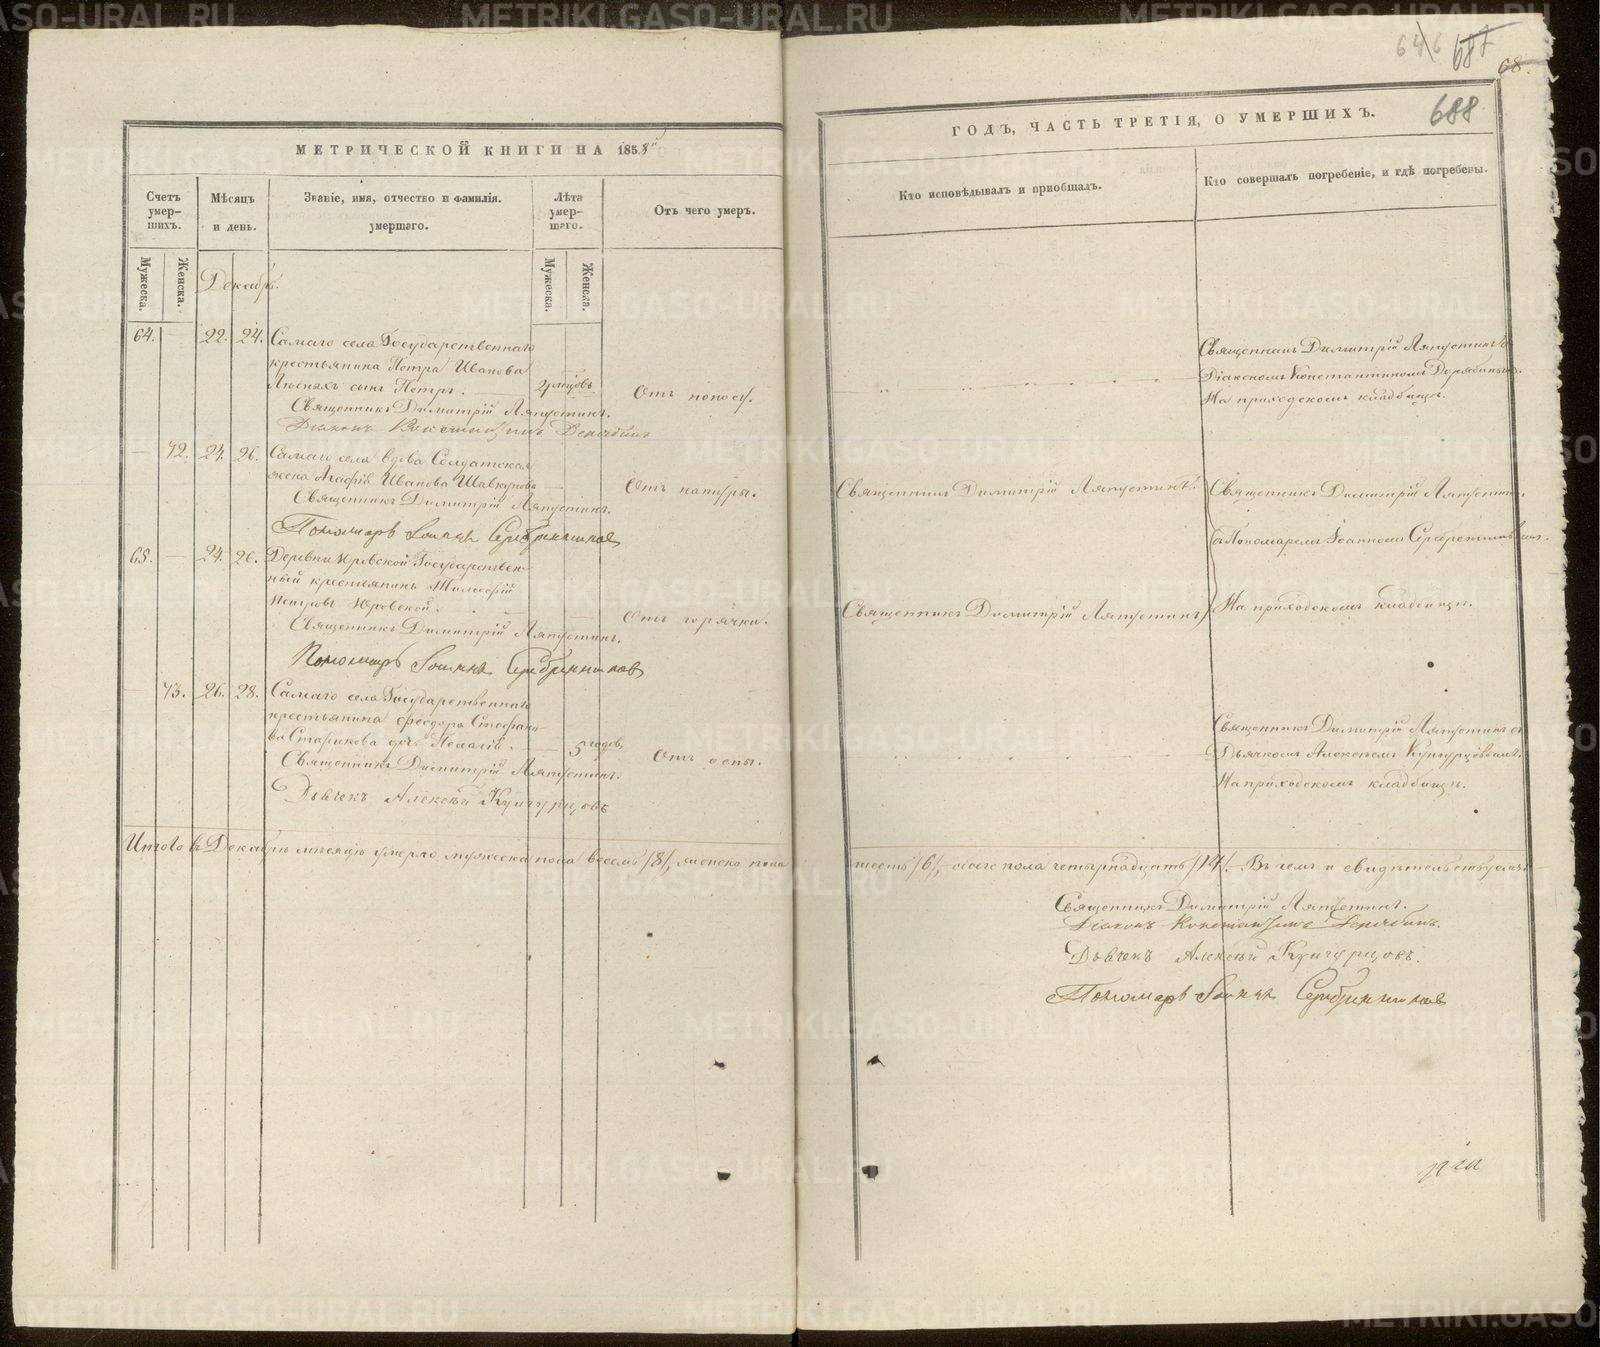 646 687 68.
688
МЕТРИЧЕСКОЙ КНИГИ НА 1858й
Счетъ умер-
шихъ.
Мѣсяцъ
и день.
Званіе, имя, отчество и фамилія.
умершаго.
Лѣта
умер-
шаго.
Отъ чего умеръ.
Мужеска.
Женска.
Мужеска.
Женска.
Декабрь.
64. 22. 24. Самаго села Государственнаго
крестьянина Петра Иванова
сынъ Петръ.
Отъ поносу.
Священникъ Димитрій Ляпустинъ.
Діаконъ Константинъ
72. 24. 26. Самаго села вдова Солдатская
жена Агафія Иванова
Отъ натуры.
Священникъ Димитрій Ляпустинъ.
Пономарь Іоаннъ Серебренниковъ
65. 24. 26. Деревни Юровской Государствен-
ный крестьянинъ
Петровъ Юровской.
Отъ горячки.
Священникъ Димитрій Ляпустинъ.
Пономарь Іоаннъ Серебренниковъ
73. 26. 28. Самаго села Государственнаго
крестьянина Феодора Стефано-
ва Старикова дочь Пелагія.
5 годов.
Отъ оспы.
Священникъ Димитрій Ляпустинъ.
Дьячекъ Алексѣй Кунгурцовъ
Итого въ Декабрѣ мѣсяцѣ умерло мужеска пола восемь /8/, женска пола
ГОДЪ, ЧАСТЬ ТРЕТІЯ, О УМЕРШИХЪ.
Кто исповѣдывалъ и пріобщалъ.
Кто совершалъ погребеніе, и гдѣ погребены.
Священникъ Димитрій Ляпустинъ съ
Діакономъ Константиномъ
На приходскомъ кладбищѣ.
Священникъ Димитрій Ляпустинъ.
Священникъ Димитрій Ляпустинъ
съ Пономаремъ Іоанномъ Серебренниковымъ.
Священникъ Димитрій Ляпустинъ
На приходскомъ кладбищѣ.
Священникъ Димитрій Ляпустинъ съ
Дьячкомъ Алексѣемъ Кунгурцовымъ.
На приходскомъ кладбищѣ.
шесть /6/, обоего пола четырнадцать /14/. Въ чемъ и свидѣтельствуемъ:
Священникъ Димитрій Ляпустинъ.
Діаконъ Константинъ
Дьячекъ Алексѣй Кунгурцовъ.
Пономарь Іоаннъ Серебренниковъ
METRIKI.GASO-URAL.RU